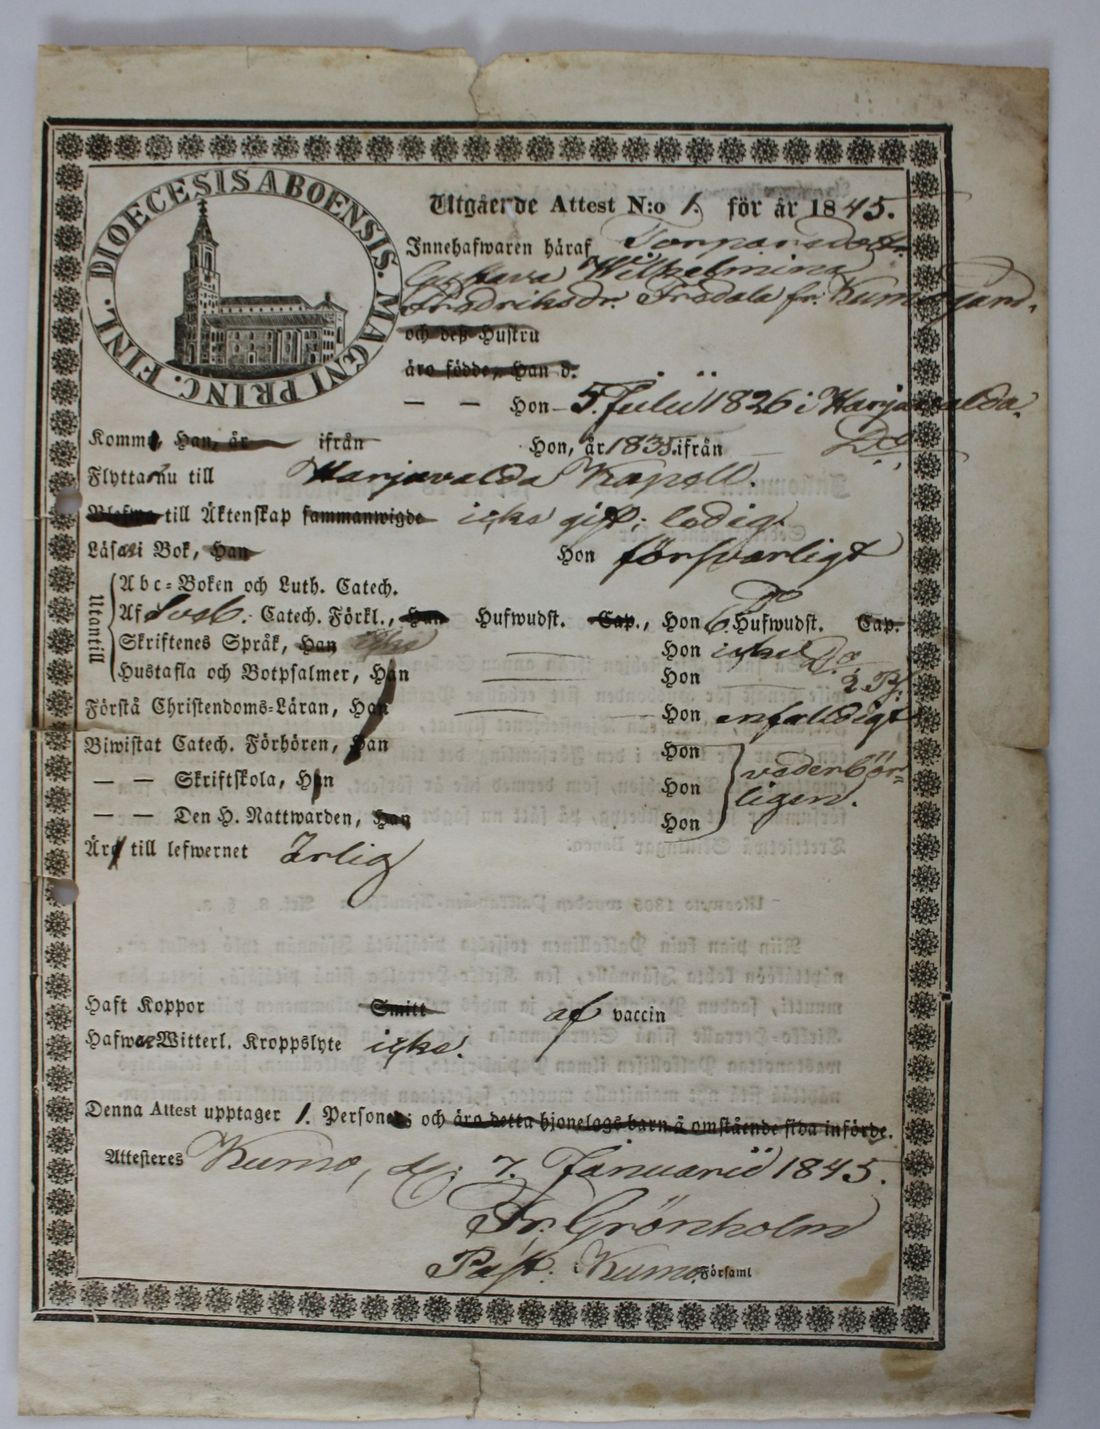 DIOECESIS ABOENSIS. MAGNI PRINC. FINL.
Utgående Attest N:o 1. för år 1845.
Innehafwaren häraf Torparedott.
Gustava Wilhelmina
Fredriksdr. Fredala fr. Kumo
och deß Hustru
äro födde, Han d.
— — Hon 5. Julii 1826 i Harjavalda.
Komm, Han, år ifrån Hon, år 1835. ifrån Do.
Flytta nu till Harjavalda Kapell.
till Äktenskap sammanwigde icke gift; ledig.
Läsa i Bok, Han Hon försvarligt
Utantill
Abc-Boken och Luth. Catech.
Af Sveb. Catech. Förkl., Han Hufwudst. Cap., Hon 6. Hufwudst. Cap.
Skriftenes Språk, Han Hon icke
Hustafla och Botpsalmer, Han Hon Do. 2 Ps.
Förstå Christendoms-Läran, Han Hon enfaldigt
Biwistat Catech. Förhören, Han Hon vederbör-
— — Skriftskola, Han Hon ligen.
— — Den H. Nattwarden, Han Hon
Är till lefwernet Ärlig
Haft Koppor Smitt af vaccin
Hafwa Witterl. Kroppslyte icke.
Denna Attest upptager 1. Person; och äro detta hjonelags barn å omstående sida införde.
Attesteres Kumo, d. 7. Januarii 1845.
Fr. Grönholm
Past. i Kumo Församl